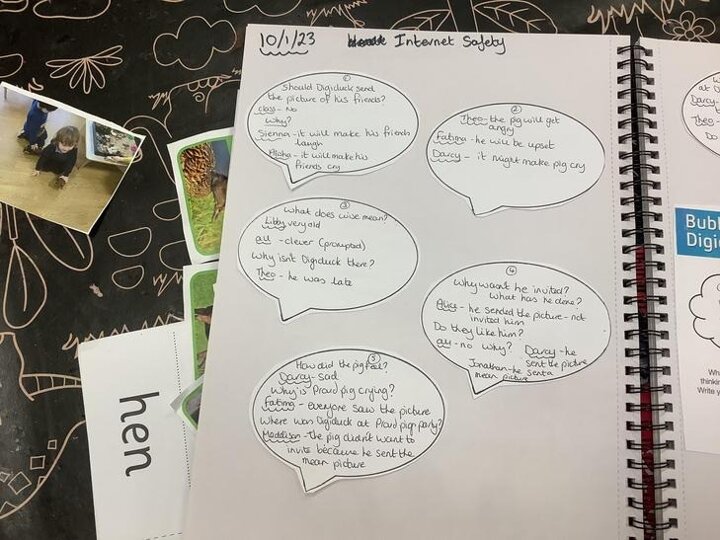 10/1/23 Internet Safety
①
Should Digiduck send
the picture of his friends?
Class - No
Why?
Sienna - it will make his friends
laugh
Alisha - it will make his
friends cry
②
Theo - the pig will get
angry
Fatima - he will be upset
Darcy - it might make pig cry
③
What does wise mean?
Libby very old
all - clever (prompted)
Why isn't Digiduck there?
Theo - he was late
④
Why wasn't he invited?
What has he done?
Alice - he sent the picture - not
invited him
Do they like him?
all - no why? Darcy - he
sent the picture
Jonathan - he sent a
mean picture
⑤
How did the pig feel?
Darcy sad
Why is Proud pig crying?
Fatima - everyone saw the picture
Where was Digiduck at Proud pigs party?
Maddison - The pig didn't want to
invite because he sent the
mean picture
hen
at D
Darcy
Theo -
Do
Bubb
Digi
Wh
thinkin
Write y